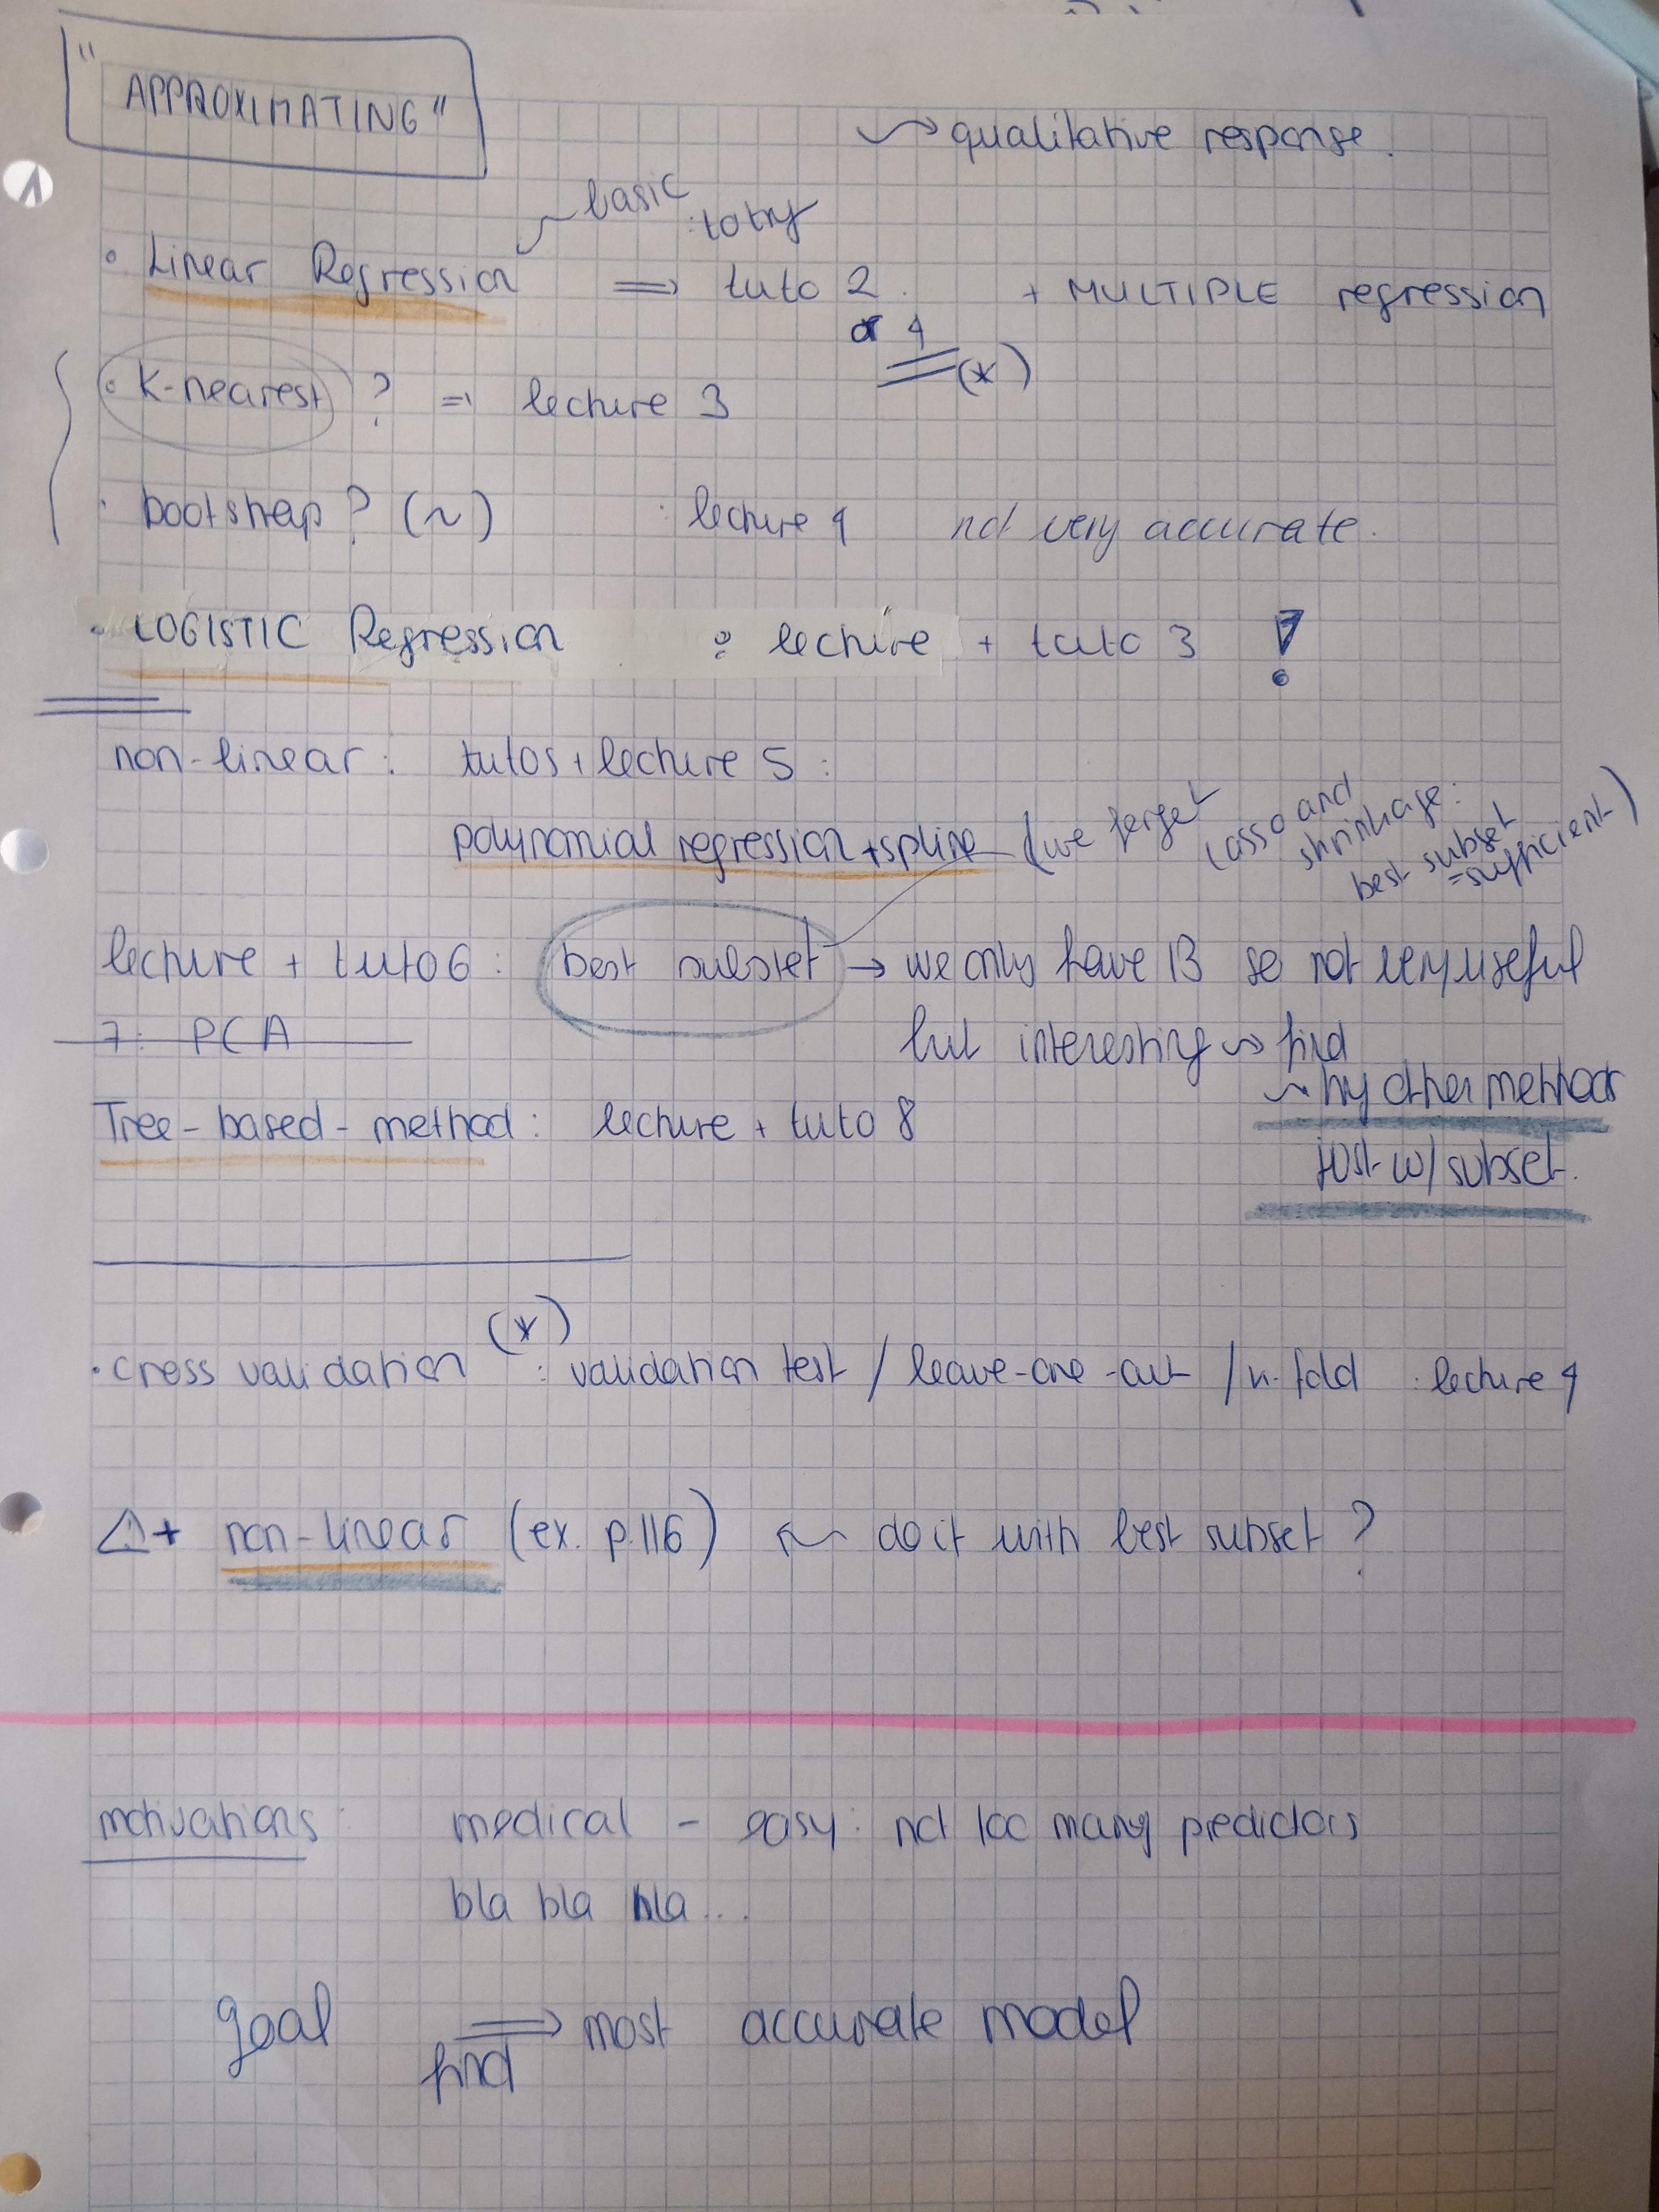 "APPROXIMATING"
~> qualitative response.
basic
to try
• Linear Regression => tuto 2. + MULTIPLE regression
or 4
(*)
• K-nearest ? => lecture 3
• bootstrap ? (~) : lecture 4 not very accurate.
• LOGISTIC Regression : lecture + tuto 3 !
non-linear : tutos + lecture 5 :
polynomial regression + spline (we forget
lasso and
shrinkage :
best subset
= sufficient)
lecture + tuto 6 : best subset → we only have 13 so not very useful
but interesting ~> find
7: PCA
~> try other method
just w/ subset.
Tree-based-method : lecture + tuto 8
(*)
• cross validation : validation test / leave-one-out / k-fold : lecture 4
⚠ + non-linear (ex. p.116) <~ do it with best subset ?
motivations : medical - easy : not too many predictors
bla bla bla...
goal => most accurate model
find